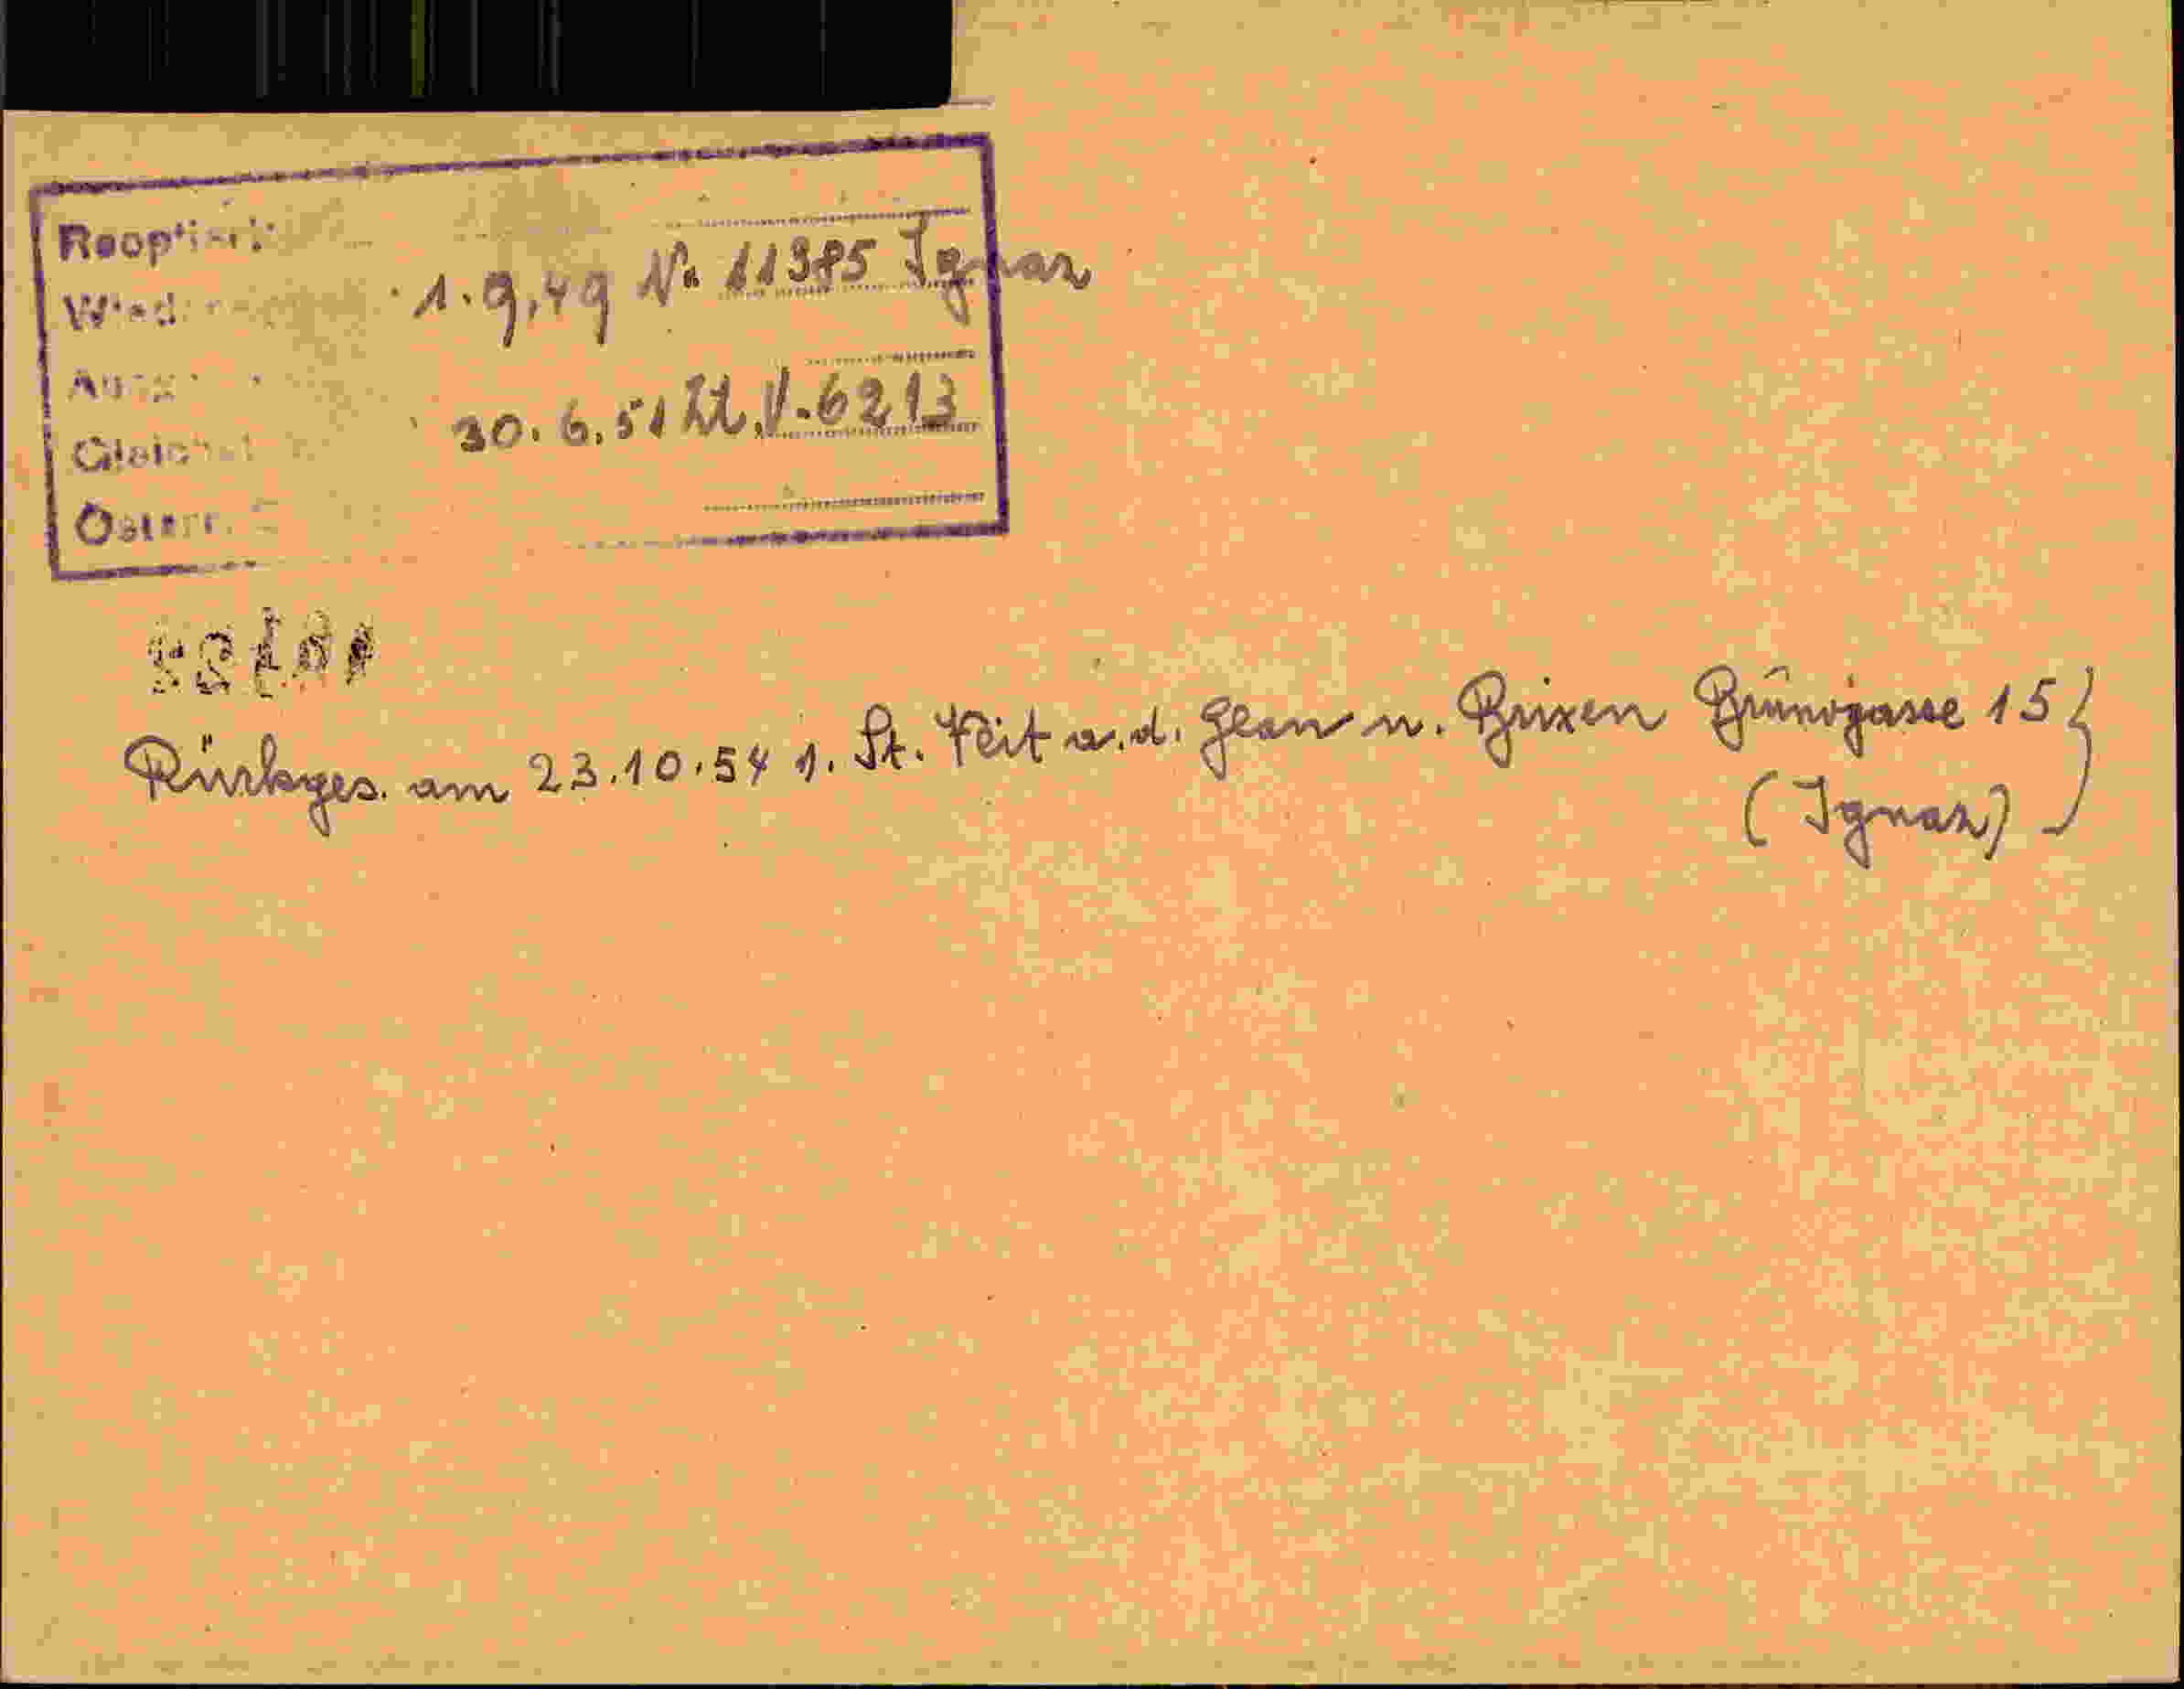 Reoptiert:
1.9.49 No 11385 Ignaz
30.6.51 Zl. V. 6213
Österr.
Rückges. am 23.10.54 v. St. Veit a.d. Glan n. Brixen Brunogasse 15
(Ignaz)